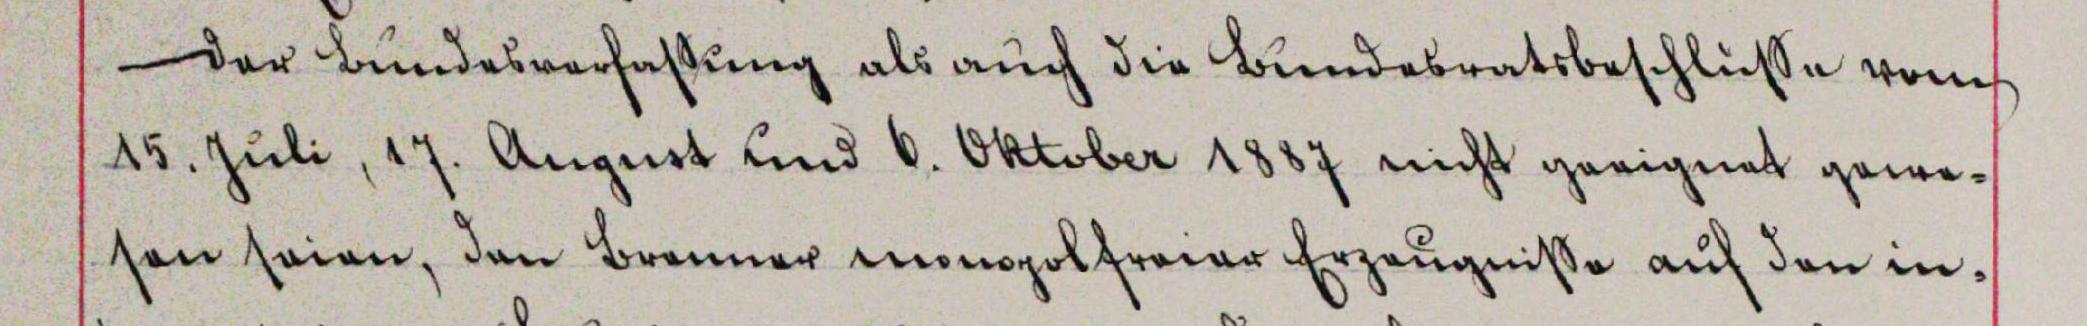 der Bundesverfassung als auch die Bundesratsbeschlüsse vom
15. Juli, 17. August und 6. Oktober 1887 nicht geeignet gewe-
sen seien, den Brenner monopolfreier Erzeugnisse auf den in-